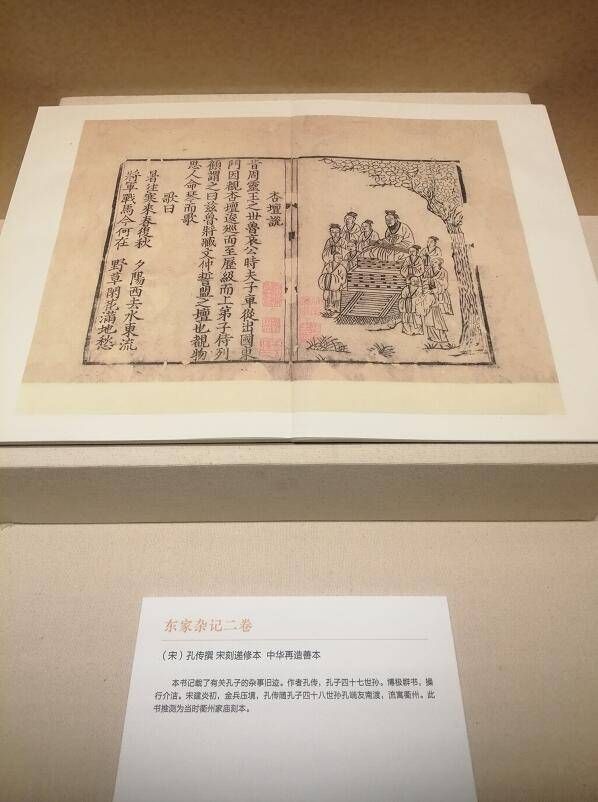 杏壇說
昔周靈王之世魯哀公時夫子車從出國東
門因觀杏壇逡巡而至歷級而上弟子侍列
顧謂之曰茲魯將臧文仲誓盟之壇也覩物
思人命琴而歌
歌曰
暑往寒來春復秋 夕陽西去水東流
將軍戰馬今何在 野草閑花滿地愁
东家杂记二卷
（宋）孔传撰 宋刻递修本 中华再造善本
本书记载了有关孔子的杂事旧迹。作者孔传，孔子四十七世孙。博极群书，操
行介洁。宋建炎初，金兵压境，孔传随孔子四十八世孙孔端友南渡，流寓衢州。此
书推测为当时衢州家庙刻本。